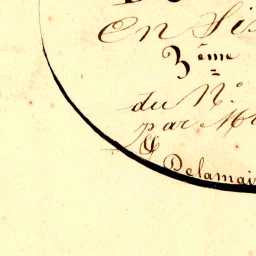 En Si
3ème
du N°.
par M
&
Delamai